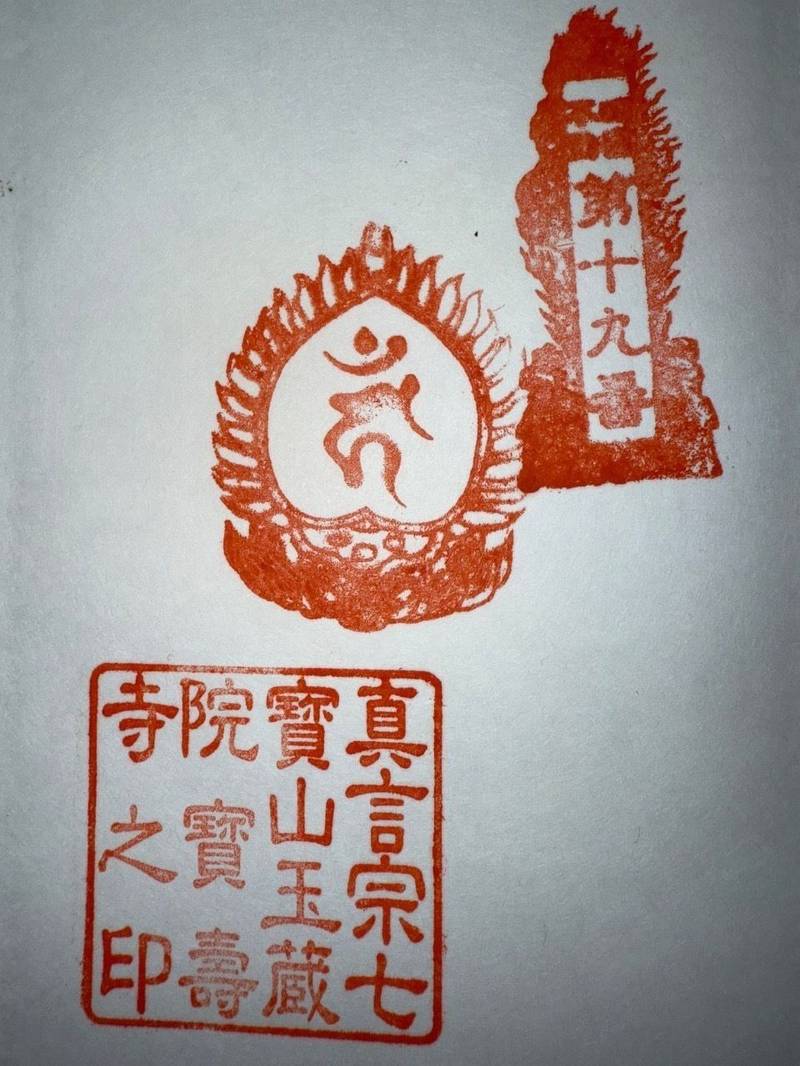 第十九番
真言宗七
寶山玉蔵
院寶壽
寺之印